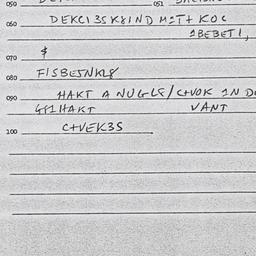 050
051
060 DEKCI3SK8IND M=T+ KOC
1BEBET!,
070 $
080 FISBESNKL8
090 HAKT A NUGLE/C+VOK 1N D
G81HAKT VANT
100 C+VEK3S